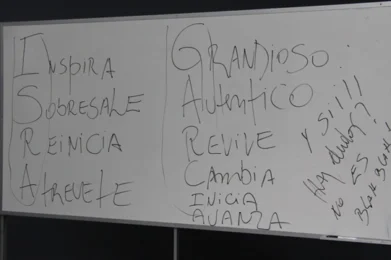 INSPIRA
SOBRESALE
REINICIA
ATREVETE
GRANDIOSO
AUTENTICO
REVIVE
CAMBIA
INICIA
AVANZA
Y SI!!!
Hay dudas?
NO ES
Blah Blah